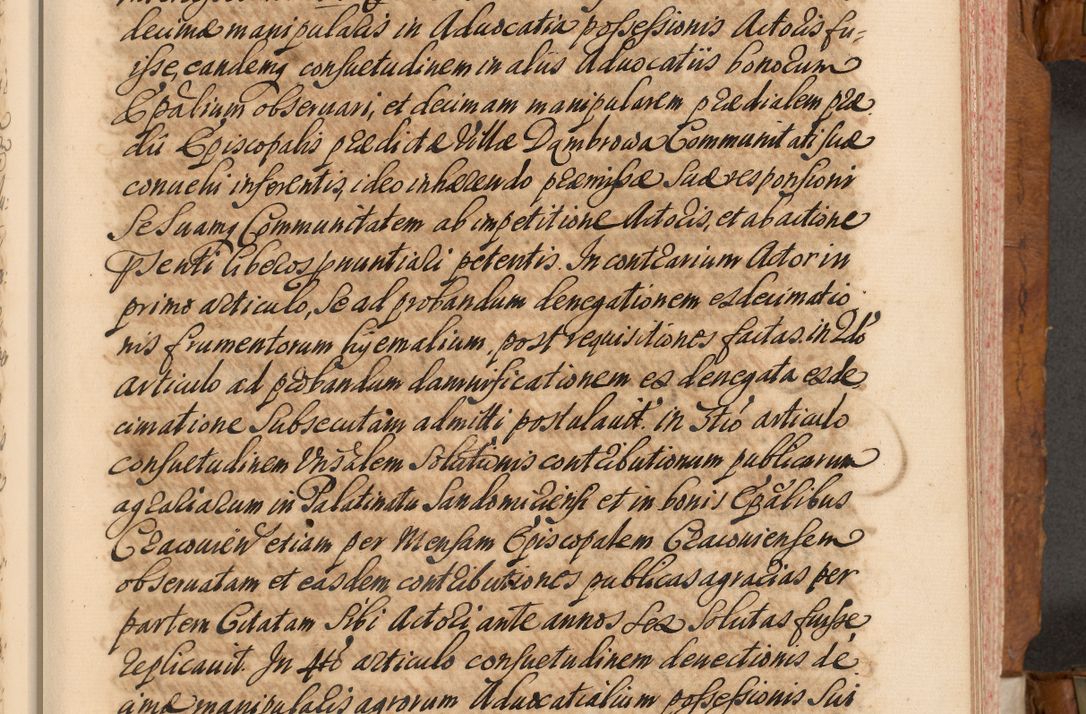 decimæ manipularis in Aduocatia possessionis Actoris fu-
isse, eandemq consuetudinem in aliis Aduocatiis bonorum
Epalium obseruari, et decimam manipularem prædialem præ
dii Episcopalis prædictæ Villæ Dąmbrowa Communitati suæ
conuehi inferentis, ideo inhærendo præmissæ suæ responsioni
se suamq Communitatem ab impetitione Actoris, et ab actione
pnti liberos pnuntiari petentis. In contrarium Actor in
primo articulo, se ad probandum denegationem exdecimatio
nis frumentorum hyemalium, post requisitiones factas, in 2do
articulo ad probandum damnificationem ex denegata exde
cimatione subsecutam admitti postulauit. in 3tio articulo
consuetudinem Vnsalem solutionis contributionum publicarum
agrariarum in Palatinatu Sandomiriensi et in bonis Epalibus
Cracouien etiam per Mensam Episcopalem Cracouiensem
obseruatam et easdem contributiones publicas agrarias per
partem Citatam sibi Actori ante annos sex solutas fuisse
replicauit. In 4to articulo consuetudinem deuectionis de
cimæ manipularis agrorum Aduocatialium possessionis sui